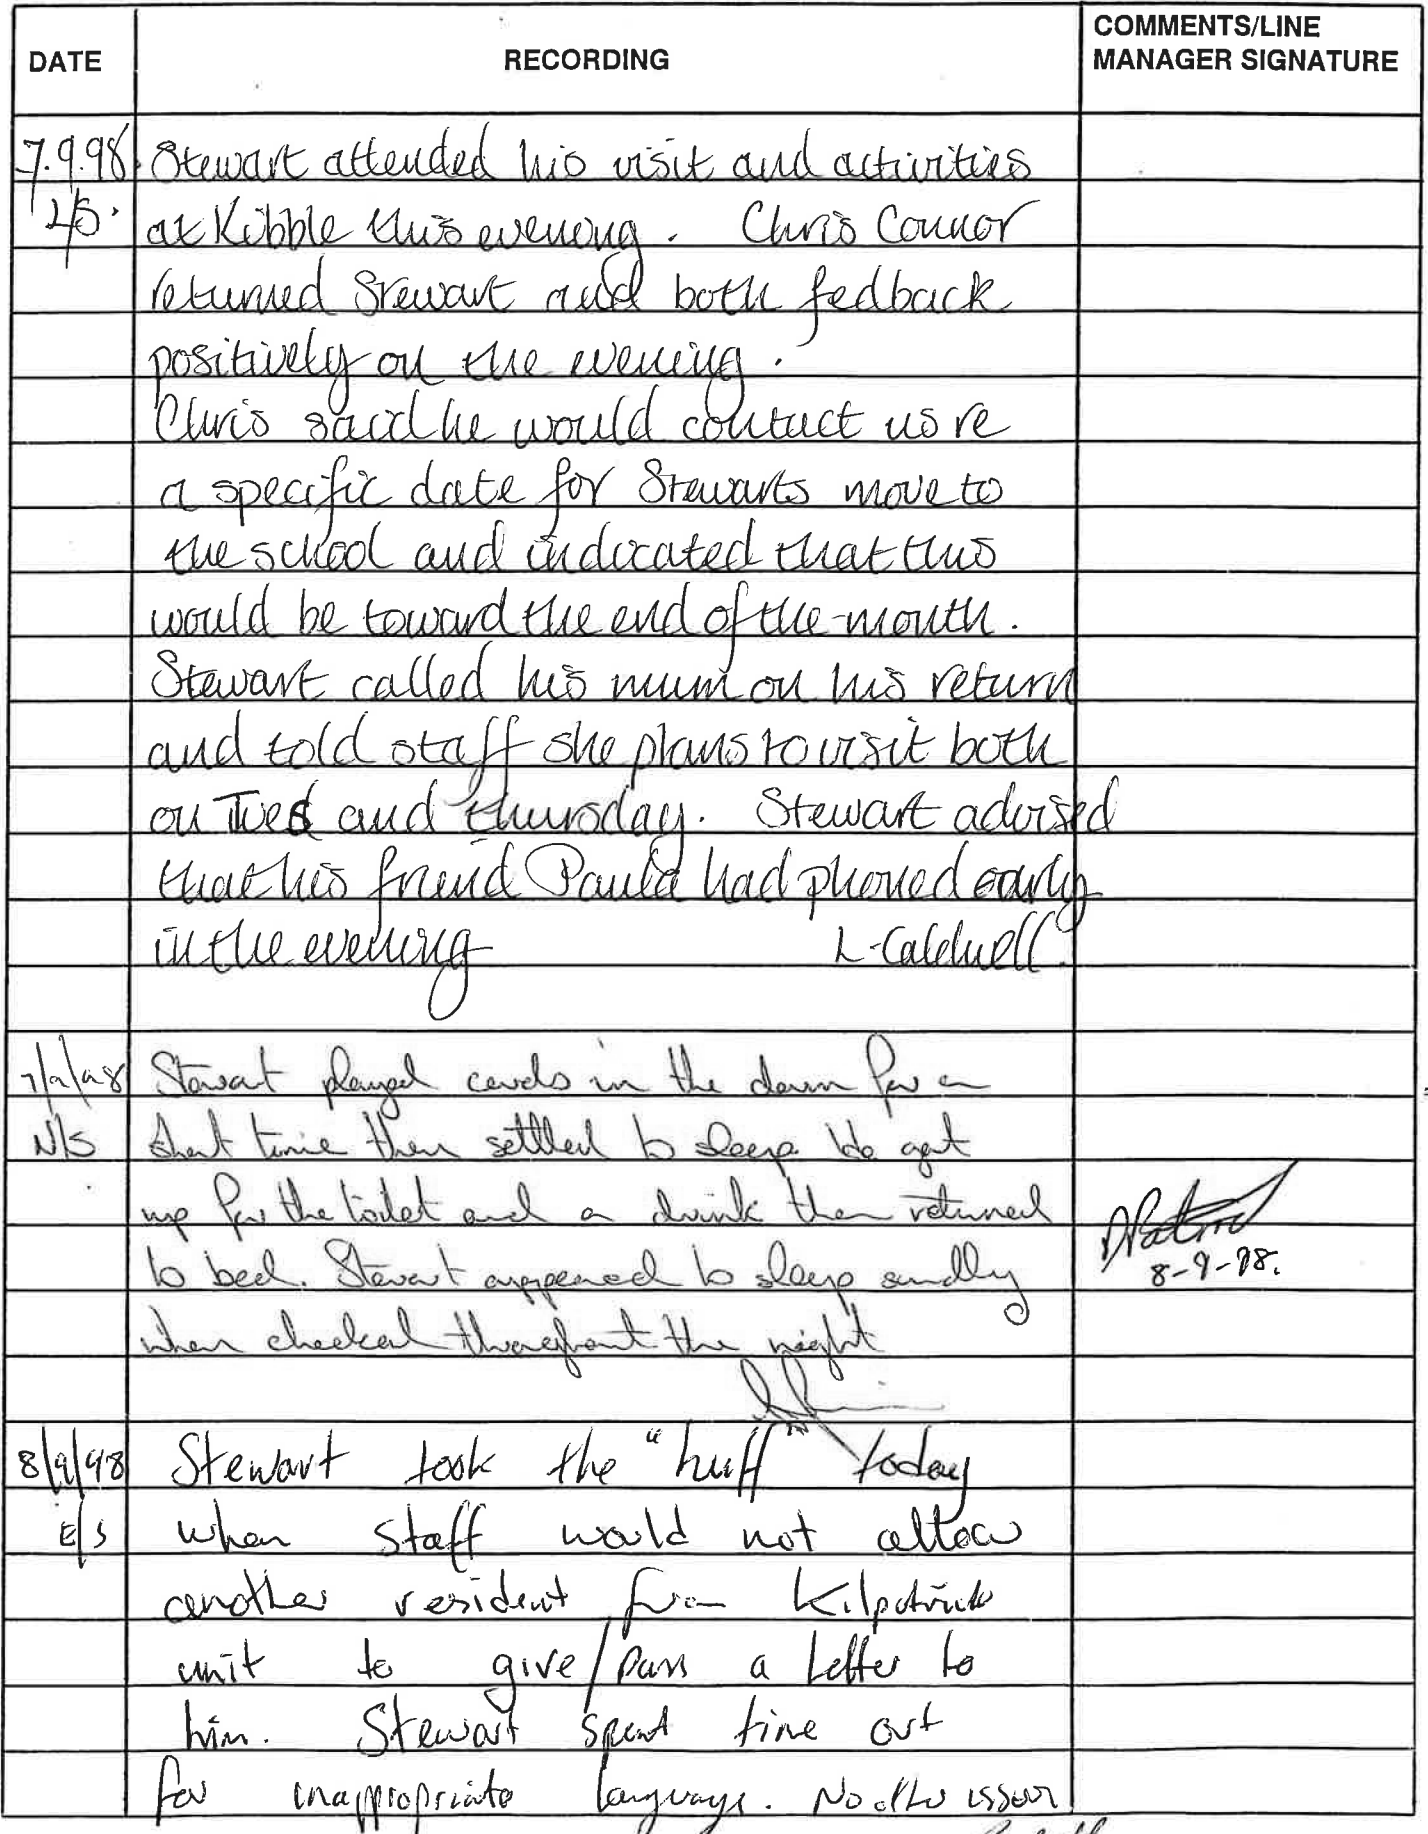 DATE
RECORDING
COMMENTS/LINE
MANAGER SIGNATURE
7.9.98. Stewart attended his visit and activities
L/S. at Kibble this evening. Chris Connor
returned Stewart and both fedback
positively on the evening.
Chris said he would contact us re
a specific date for Stewarts move to
the school and indicated that this
would be toward the end of the month.
Stewart called his mum on his return
and told staff she plans to visit both
on Tues and thursday. Stewart advised
that his friend Paula had phoned early
in the evening L. Caldwell.
7/9/98 Stewart played cards in the dorm for a
N/S short time then settled to sleep. He got
up for the toilet and a drink then returned
to bed. Stewart appeared to sleep soundly
when checked throughout the night
8-9-98.
8/9/98 Stewart took the "huff" today
E/S when staff would not allow
another resident from Kilpatrick
unit to give/pass a letter to
him. Stewart spent time out
for inappropriate language. No other issues